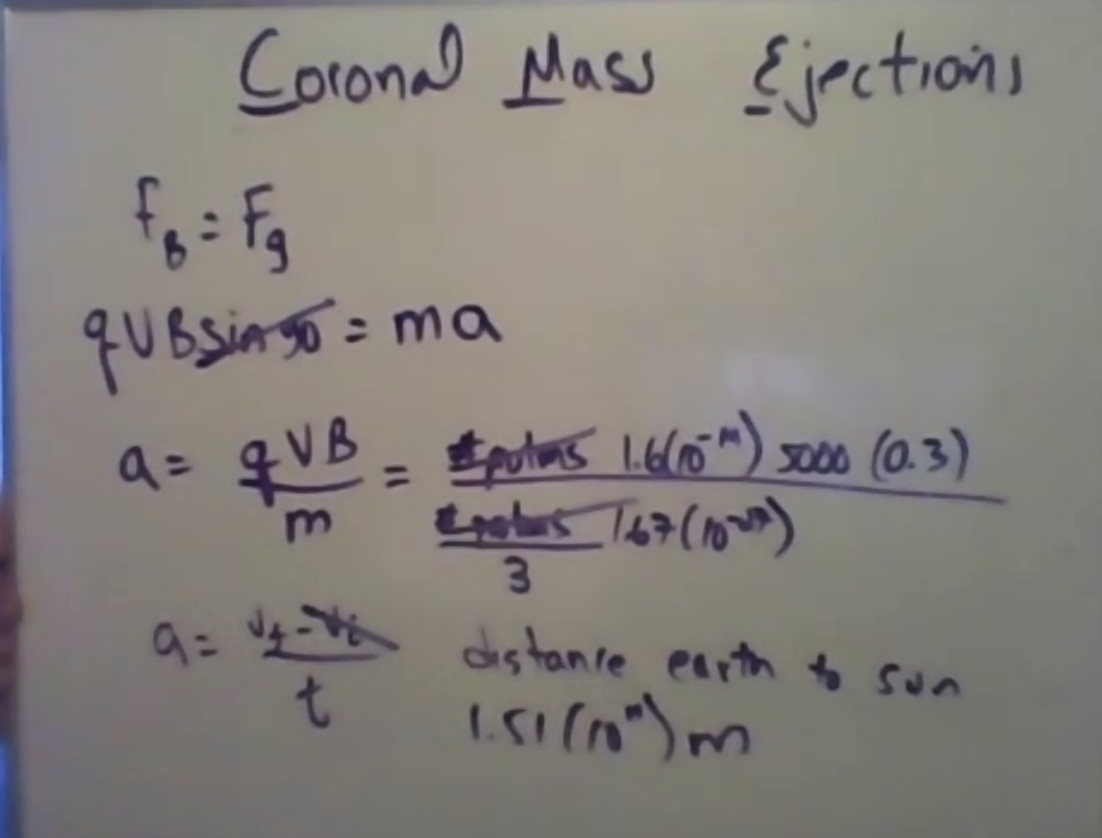 Coronal Mass Ejections
F_B = F_g
qVB sin 90 = ma
a = qVB/m = 1.6(10^-19) 5000 (0.3) / 3 1.67(10^-27)
a = (V_f - V_i)/t
distance earth to sun
1.51(10^11)m